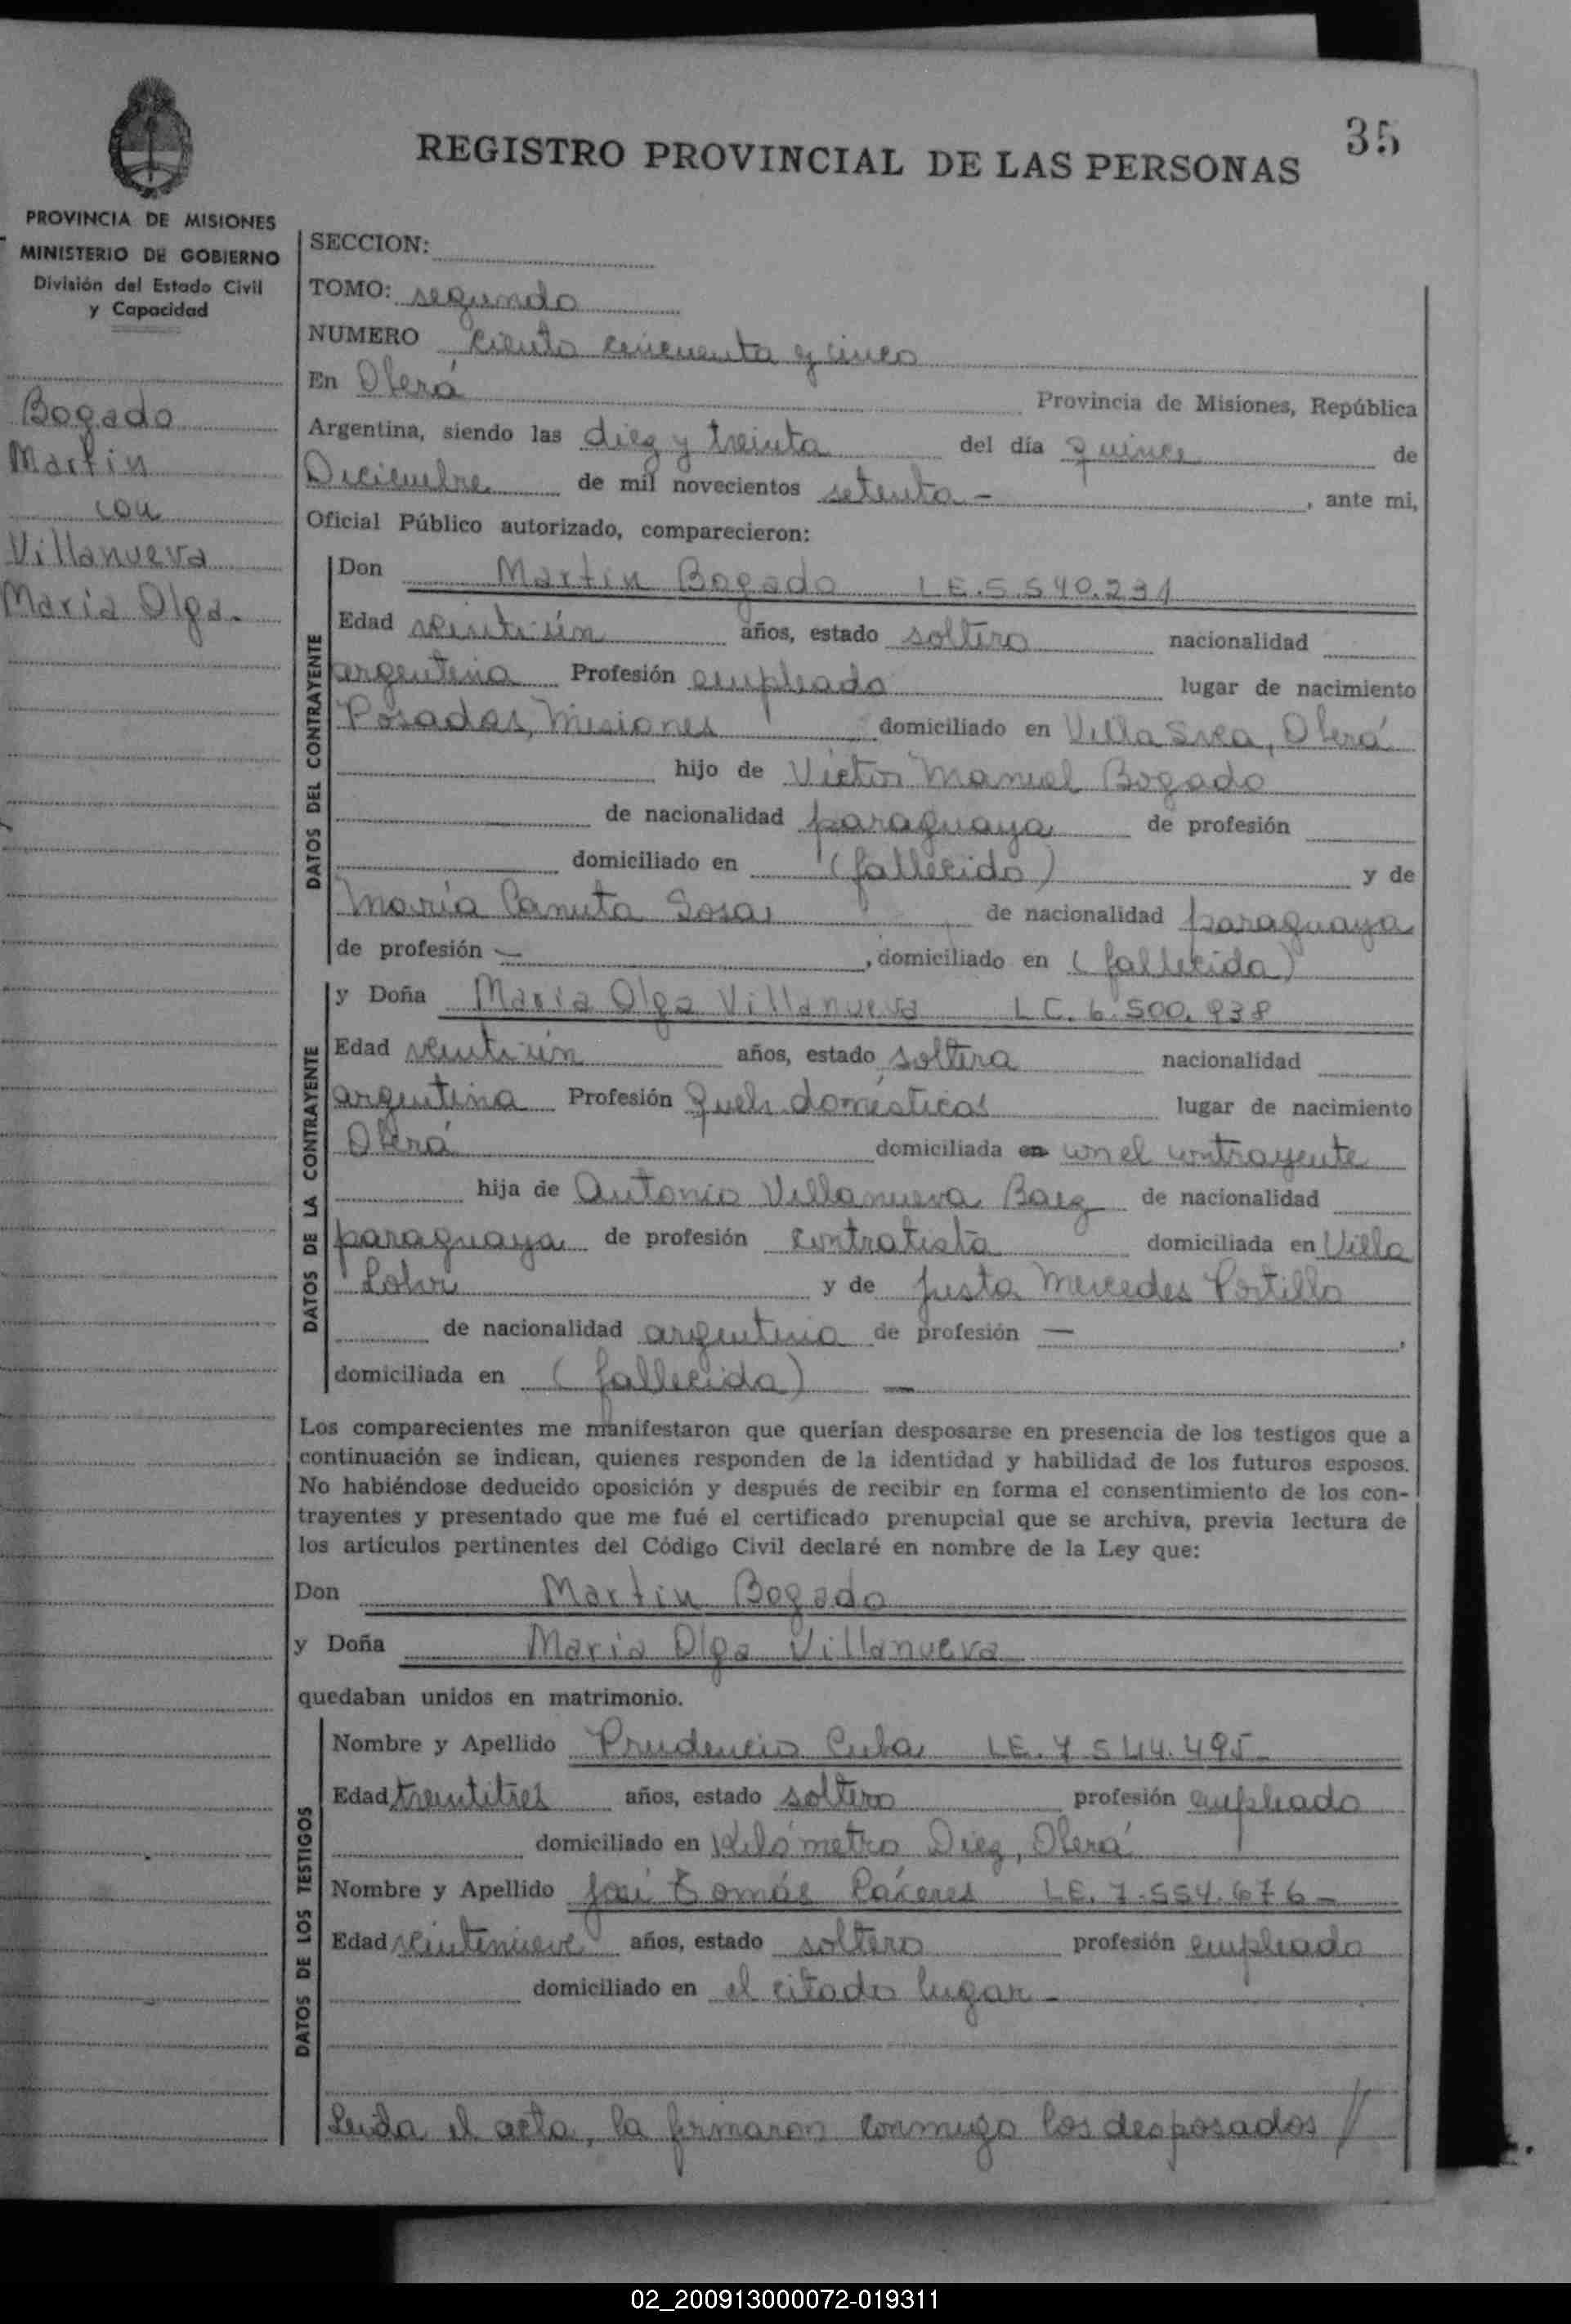 35
REGISTRO PROVINCIAL DE LAS PERSONAS
PROVINCIA DE MISIONES
MINISTERIO DE GOBIERNO
División del Estado Civil
y Capacidad
Bogado
Martin
con
Villanueva
Maria Olga.
SECCION:
TOMO: segundo
NUMERO ciento cincuenta y cinco
En Oberá Provincia de Misiones, República
Argentina, siendo las diez y treinta del día quince de
Diciembre de mil novecientos setenta - , ante mi,
Oficial Público autorizado, comparecieron:
DATOS DEL CONTRAYENTE
Don Martin Bogado LE.5.540.231
Edad veintiún años, estado soltero nacionalidad
argentina Profesión empleado lugar de nacimiento
Posadas, Misiones domiciliado en Villa Svea, Oberá
hijo de Victor Manuel Bogado
de nacionalidad paraguaya de profesión
domiciliado en (fallecido) y de
María Canuta Sosa de nacionalidad paraguaya
de profesión — , domiciliado en (fallecida)
DATOS DE LA CONTRAYENTE
y Doña Maria Olga Villanueva LC. 6.500.938
Edad veintiún años, estado soltera nacionalidad
argentina Profesión queh. domésticos lugar de nacimiento
Oberá domiciliada en con el contrayente
hija de Antonio Villanueva Baez de nacionalidad
paraguaya de profesión contratista domiciliada en Villa
y de Justa Mercedes Portillo
de nacionalidad argentina de profesión — ,
domiciliada en (fallecida) —
Los comparecientes me manifestaron que querían desposarse en presencia de los testigos que a
continuación se indican, quienes responden de la identidad y habilidad de los futuros esposos.
No habiéndose deducido oposición y después de recibir en forma el consentimiento de los con-
trayentes y presentado que me fué el certificado prenupcial que se archiva, previa lectura de
los artículos pertinentes del Código Civil declaré en nombre de la Ley que:
Don Martin Bogado
y Doña Maria Olga Villanueva
quedaban unidos en matrimonio.
DATOS DE LOS TESTIGOS
Nombre y Apellido Prudencio Cuba LE. 7.544.495-
Edad treintitres años, estado soltero profesión empleado
domiciliado en Kilómetro Diez, Oberá
Nombre y Apellido José Tomás Cáceres LE. 7.554.676-
Edad veintenueve años, estado soltero profesión empleado
domiciliado en el citado lugar -
Leida el acta, la firmaron conmigo los desposados //
02_200913000072-019311